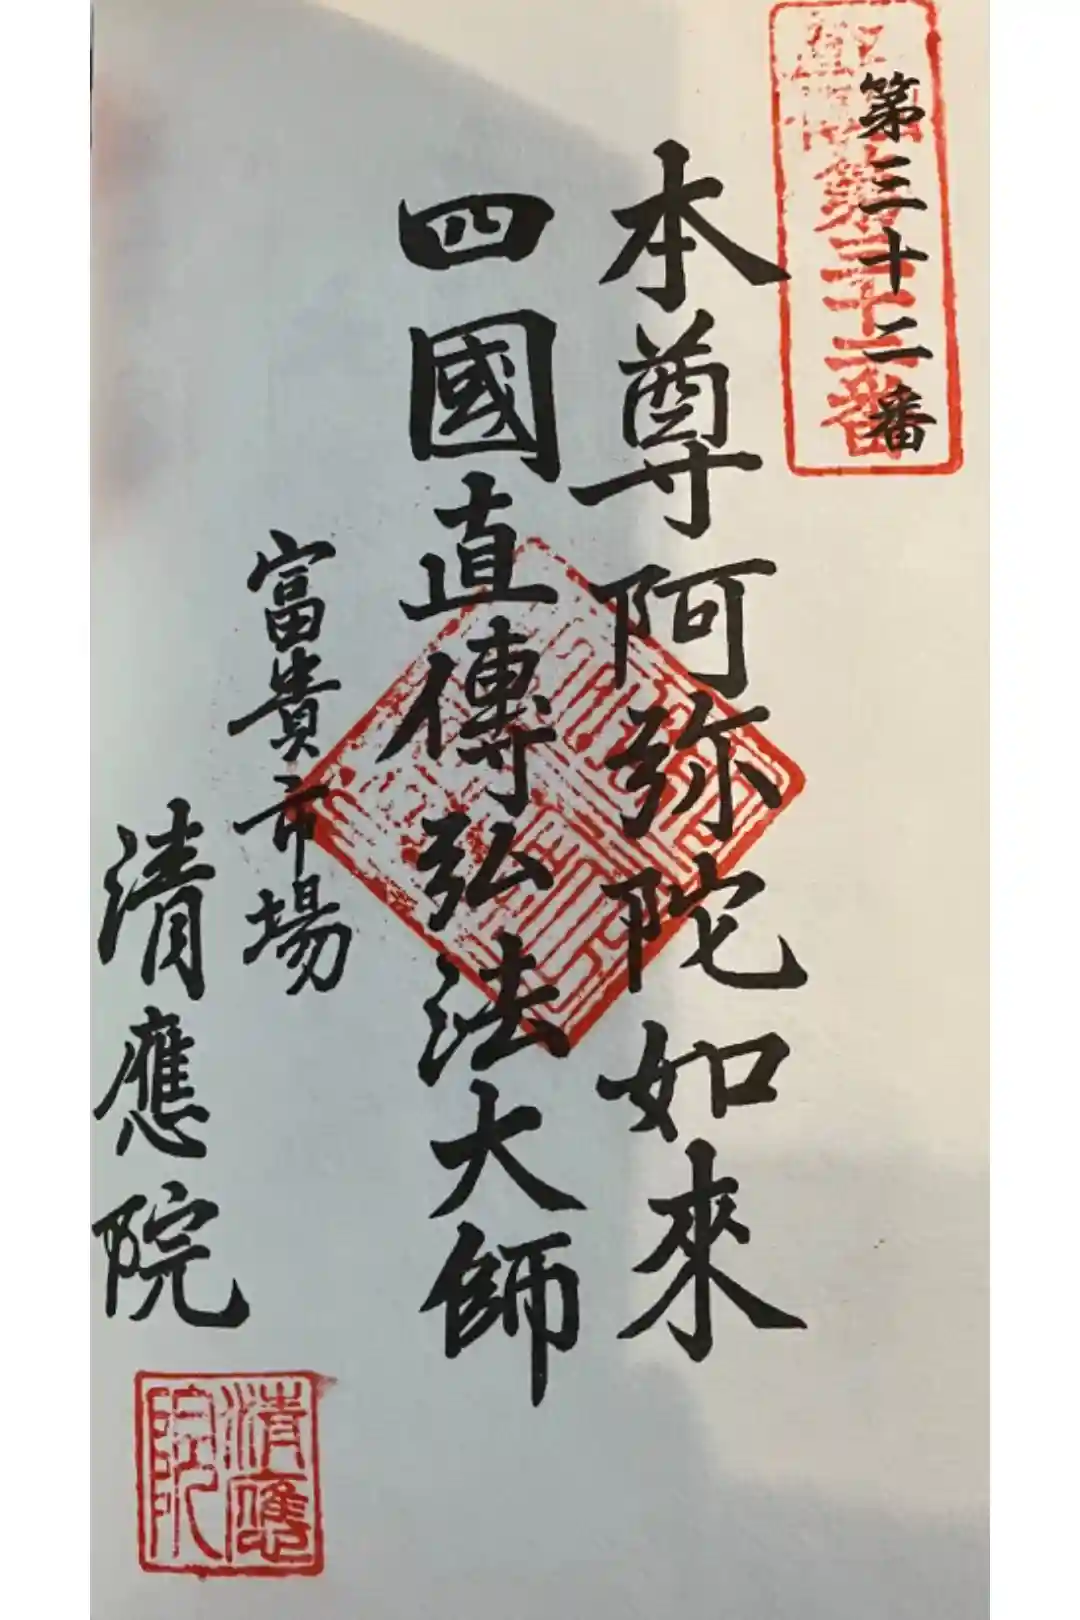 第三十二番
本尊阿弥陀如來
四國直傳弘法大師
富貴市場
清應院
第三十二番
清應院